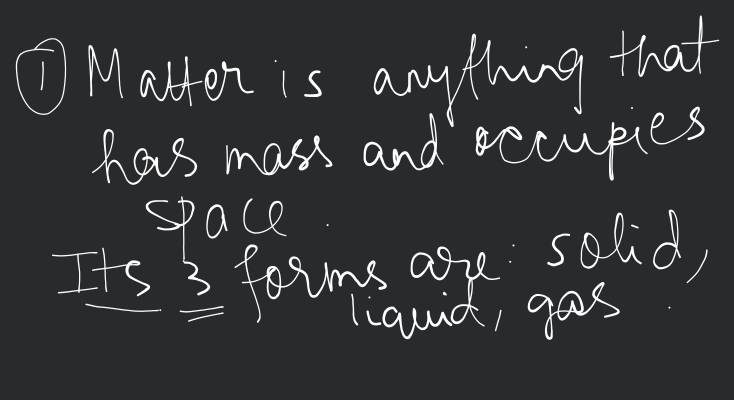 ① Matter is anything that
has mass and occupies
space.
Its 3 forms are: solid,
liquid, gas.